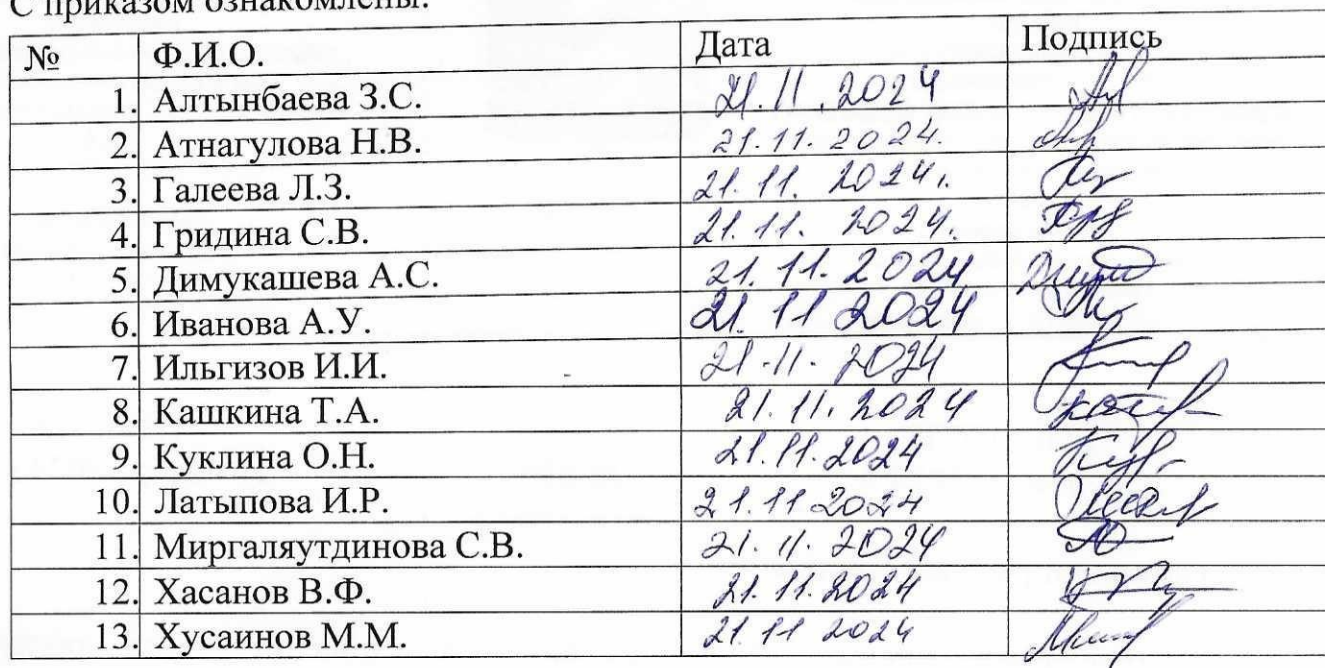 С приказом ознакомлены:
№ Ф.И.О. Дата Подпись
1. Алтынбаева З.С. 21.11.2024
2. Атнагулова Н.В. 21.11.2024.
3. Галеева Л.З. 21.11.2024.
4. Гридина С.В. 21.11.2024.
5. Димукашева А.С. 21.11.2024
6. Иванова А.У. 21.11 2024
7. Ильгизов И.И. 21.11.2024
8. Кашкина Т.А. 21.11.2024
9. Куклина О.Н. 21.11.2024
10. Латыпова И.Р. 21.11 2024
11. Миргаляутдинова С.В. 21.11.2024
12. Хасанов В.Ф. 21.11.2024
13. Хусаинов М.М. 21.11 2024